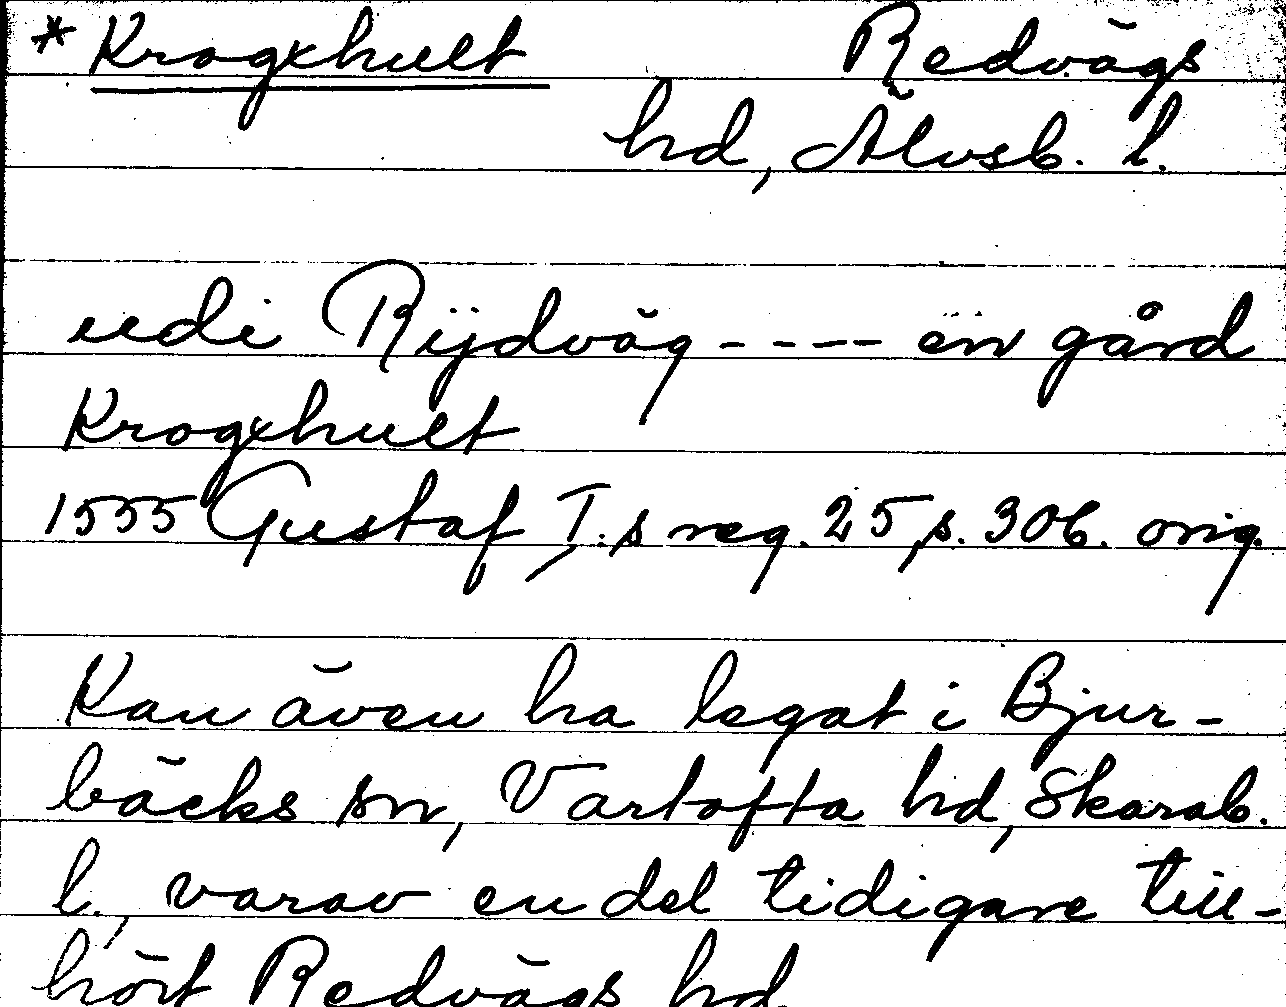 * Krogxhult Redvägs
hd, Älvsb. l.
udi Rijdväg ---- ën gård
Krogxhult
1555 Gustaf I:s reg. 25, s. 306. orig.
Kan även ha legat i Bjur-
bäcks sn, Vartofta hd, Skarab.
l., varav en del tidigare till-
hört Redvägs hd.